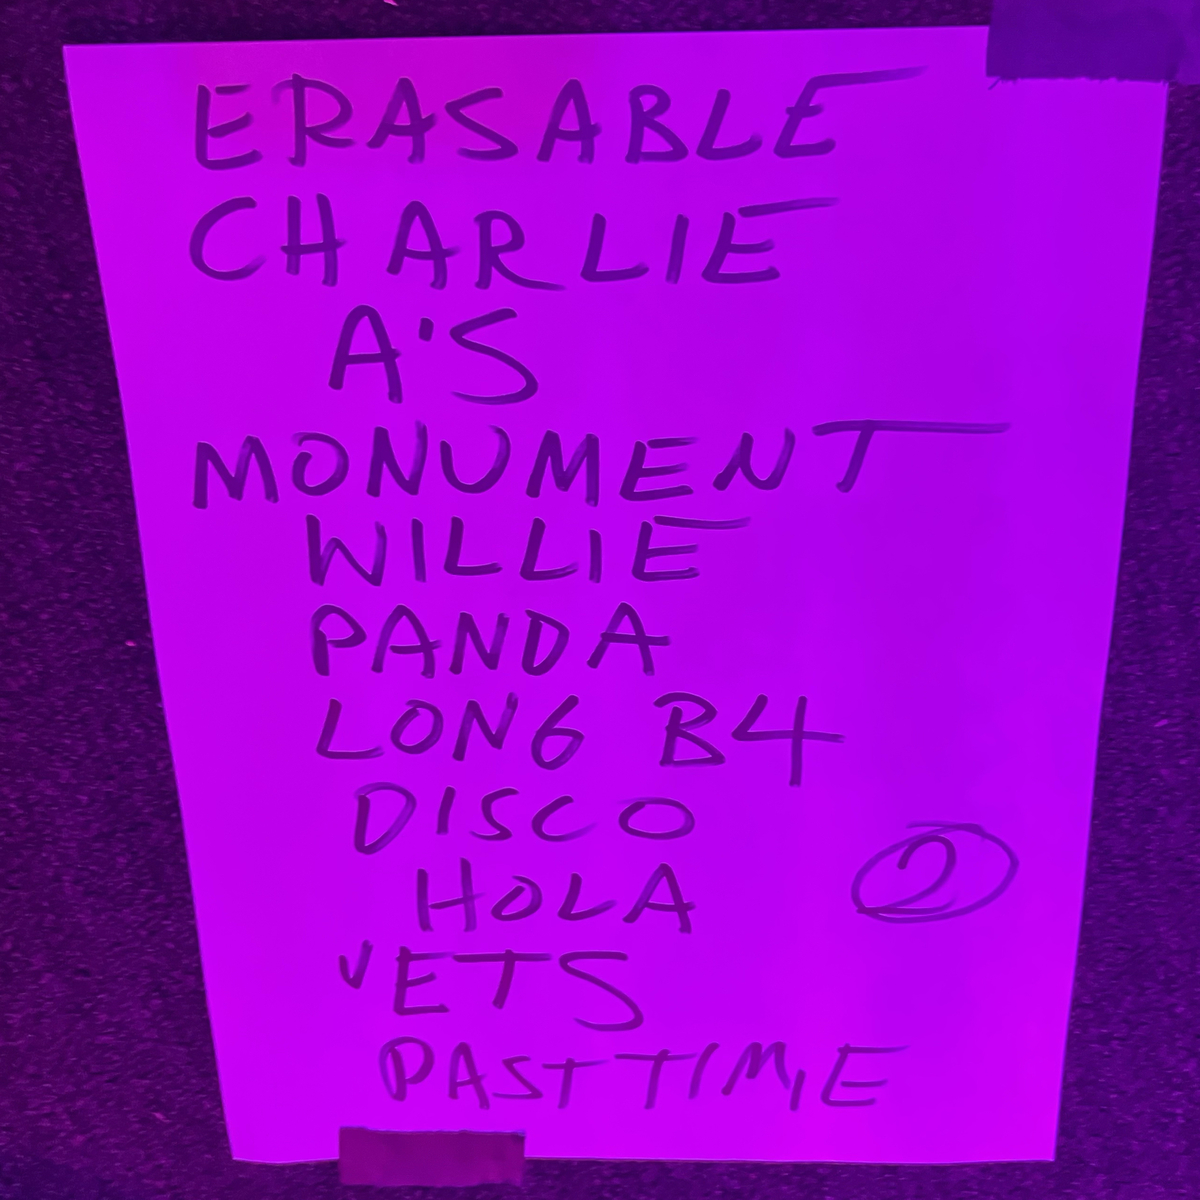 ERASABLE
CHARLIE
A'S
MONUMENT
WILLIE
PANDA
LONG B4
DISCO
HOLA
2
VETS
PASTTIME